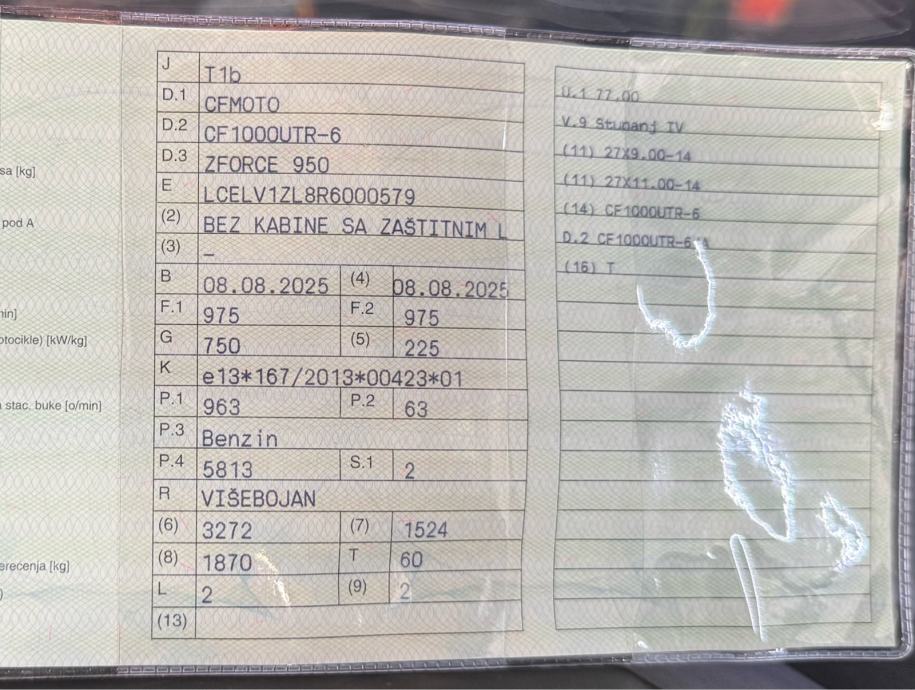 J T1b
D.1 CFMOTO
D.2 CF1000UTR-6
D.3 ZFORCE 950
E LCELV1ZL8R6000579
(2) BEZ KABINE SA ZAŠTITNIM L
(3) –
B 08.08.2025 (4) 08.08.2025
F.1 975 F.2 975
G 750 (5) 225
K e13*167/2013*00423*01
P.1 963 P.2 63
P.3 Benzin
P.4 5813 S.1 2
R VIŠEBOJAN
(6) 3272 (7) 1524
(8) 1870 T 60
L 2 (9) 2
(13)
U.1 77,00
V.9 Stupanj IV
(11) 27X9.00-14
(11) 27X11.00-14
(14) CF1000UTR-6
D.2 CF1000UTR-6
(16) T
sa [kg]
pod A
min]
otocikle) [kW/kg]
stac. buke [o/min]
erećenja [kg]
)